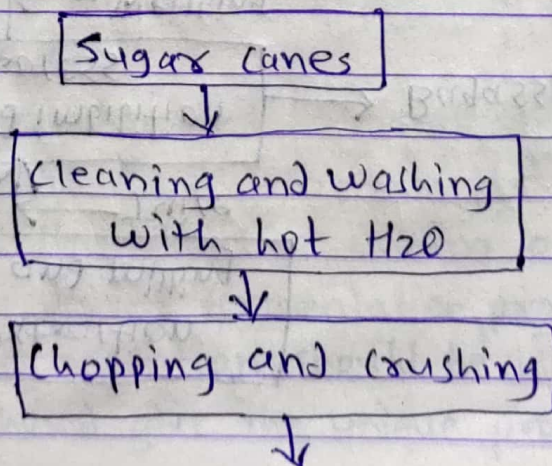 Sugar canes
Cleaning and washing
with hot H2O
Chopping and crushing